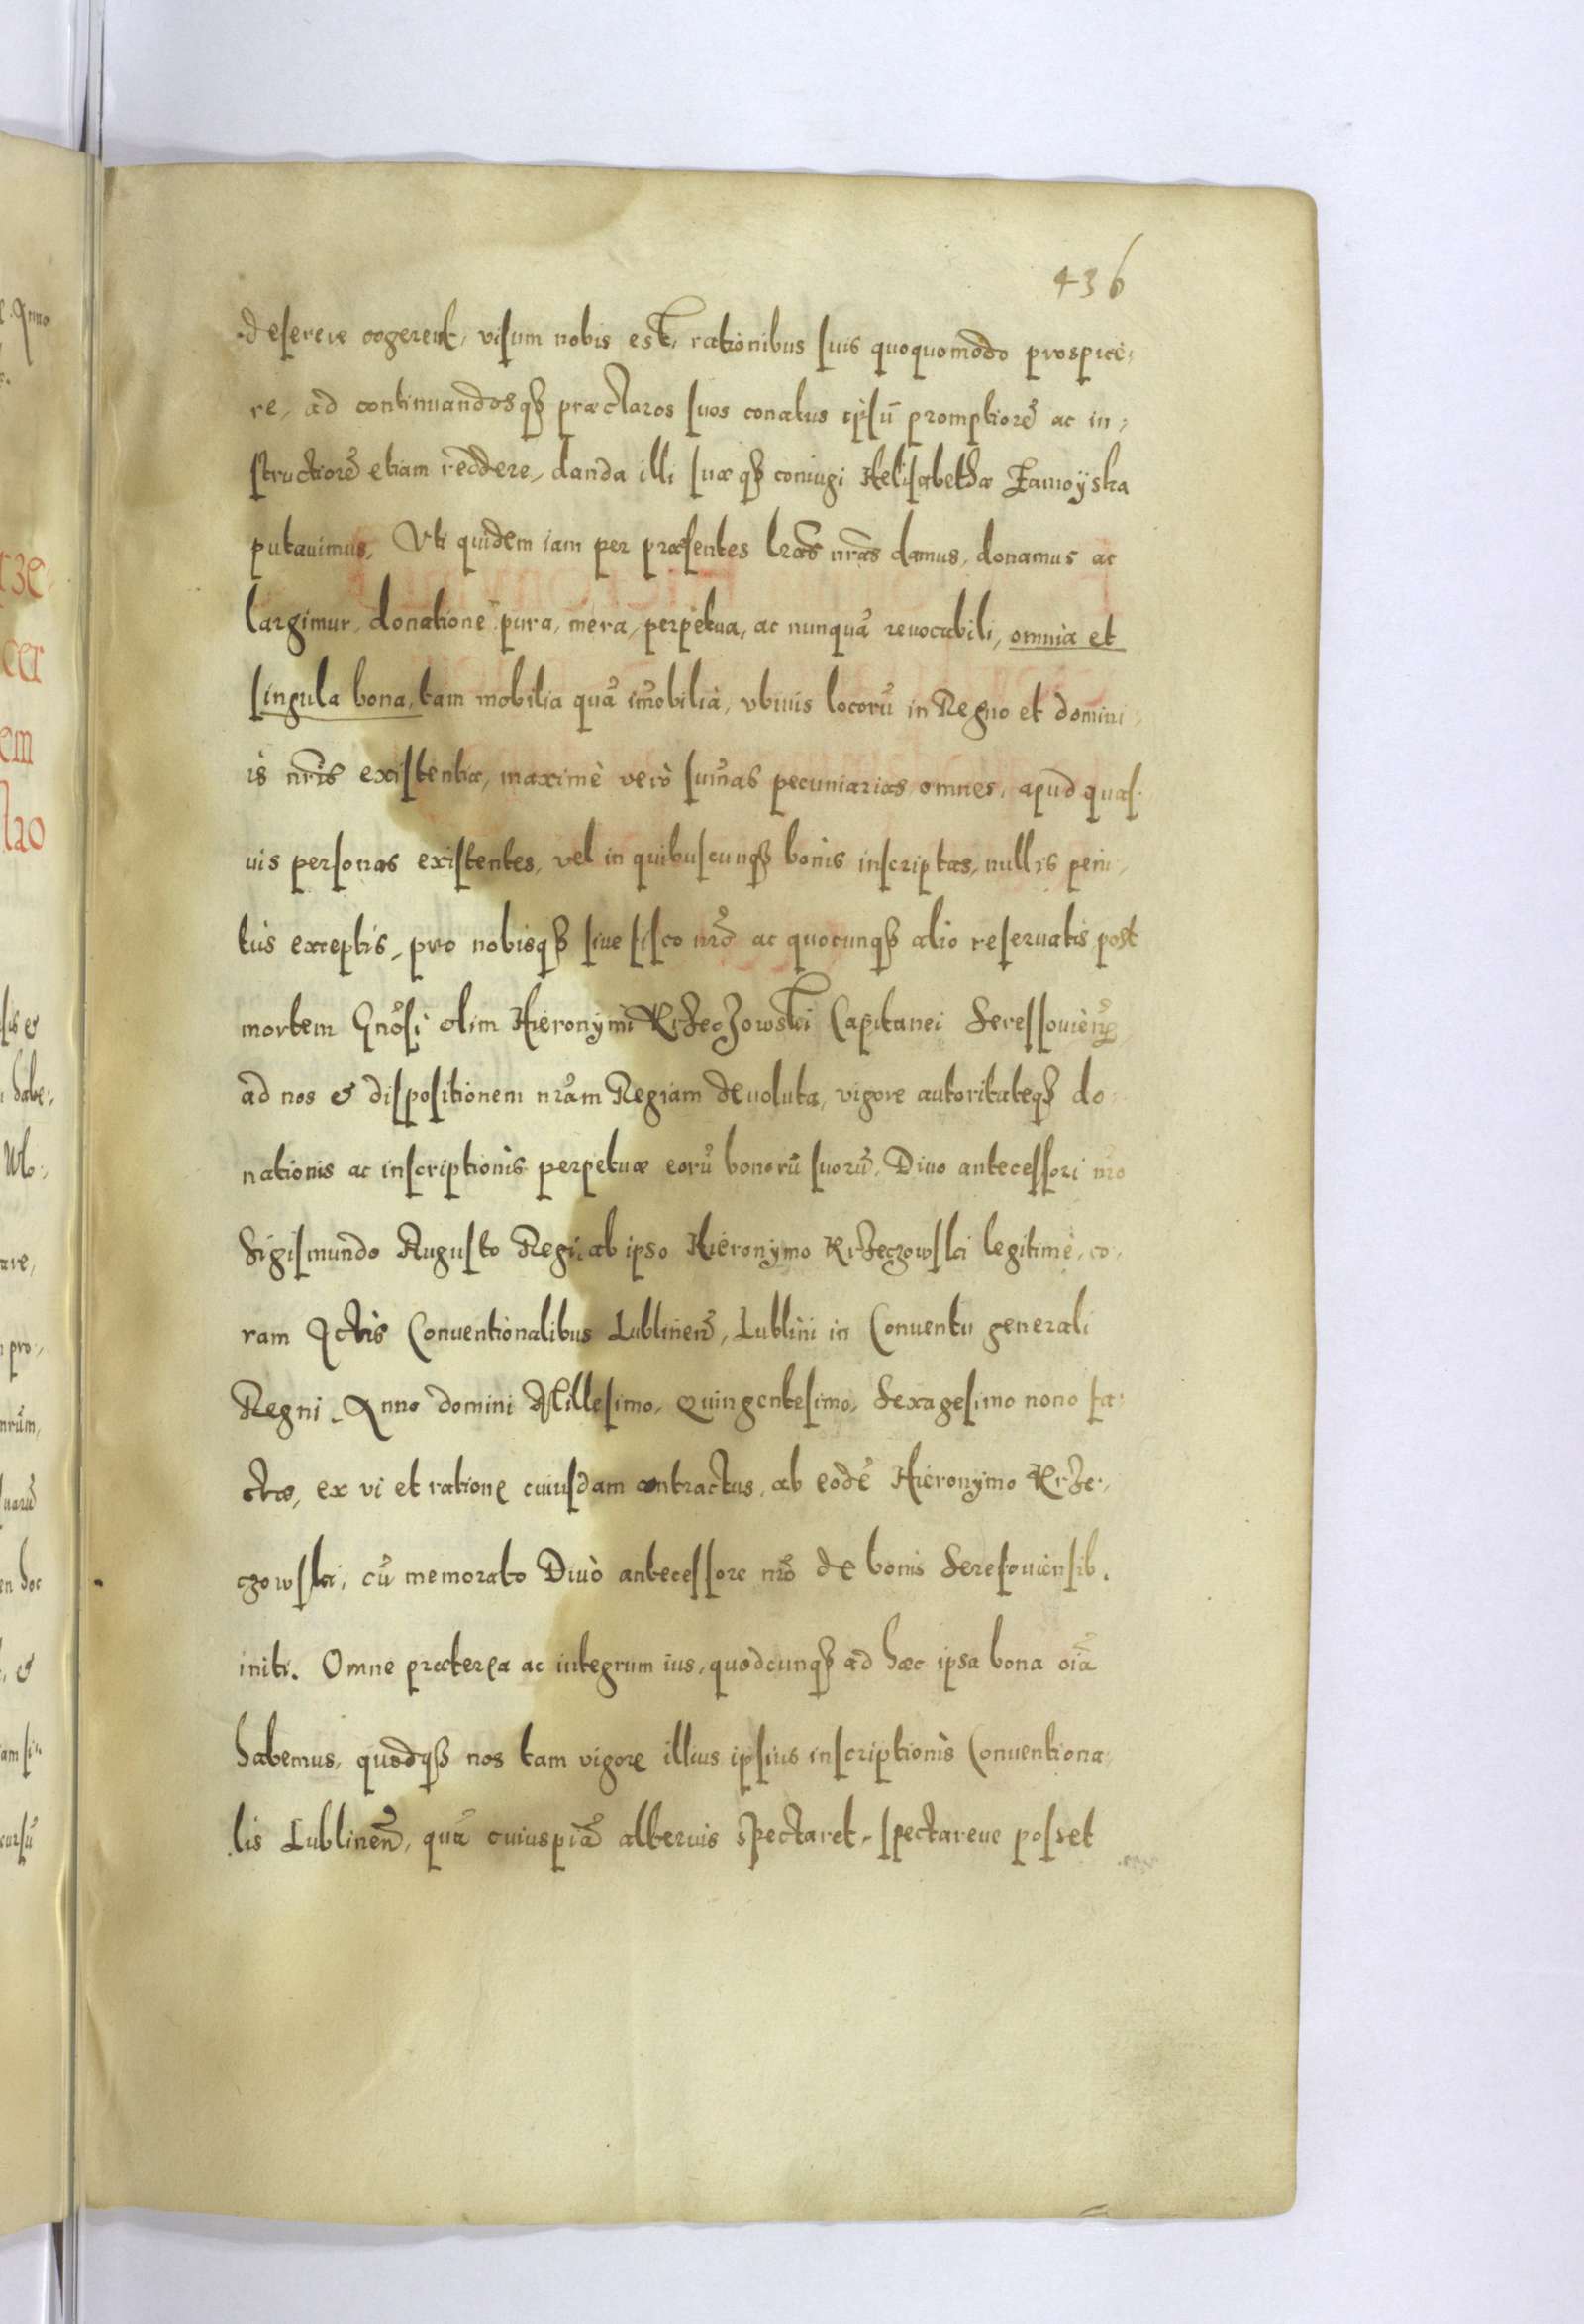 436
deserere cogeret, visum nobis est, rationibus suis quoquomodo prospice,
re, ad continuandosq₃ præclaros suos conatus ipsū promptiorē ac in,
structiorē etiam reddere, danda illi suæ q₃ coniugi Helisabethæ Zamoyska
putauimus, Vti quidem iam per præsentes lr̃as nr̃as damus, donamus ac
largimur, donatione pura, mera, perpetua, ac nunquā reuocabili, omnia et
singula bona, tam mobilia quā im̃obilia, vbiuis locorū in Regno et domini,
is nr̃is existentia, maximè verò sum̃as pecuniarias omnes, apud quas,
uis personas existentes, vel in quibuscunq₃ bonis inscriptas, nullis peni,
tùs exceptis, pro nobisq₃ siue fisco nr̃o ac quocunq₃ alio reseruatis post
mortem Gñosi olim Hieronymi Krzeczowski Capitanei Seressouieñ,
ad nos & dispositionem nr̃am Regiam deuoluta, vigore autoritateq₃ do,
nationis ac inscriptionis perpetuæ eorū bonorū suorū, Diuo antecessori nr̃o
Sigismundo Augusto Regi, ab ipso Hieronymo Krzeczowski legitimè, co,
ram Actis Conuentionalibus Lublineñ, Lublini in Conuentu generali
Regni, Anno domini Millesimo, Quingentesimo, Sexagesimo nono fa,
ctæ, ex vi et ratione cuiusdam contractus, ab eodē Hieronymo Krze,
czowski, cū memorato Diuò antecessore nr̃o de bonis Seresouiensib.
initi. Omne præterea ac integrum ius, quodcunq₃ ad hæc ipsa bona oĩa
habemus, quodq₃ nos tam vigore illius ipsius inscriptionis Conuentiona,
lis Lublineñ, quā cuiuspiā alterius spectaret, spectareue posset